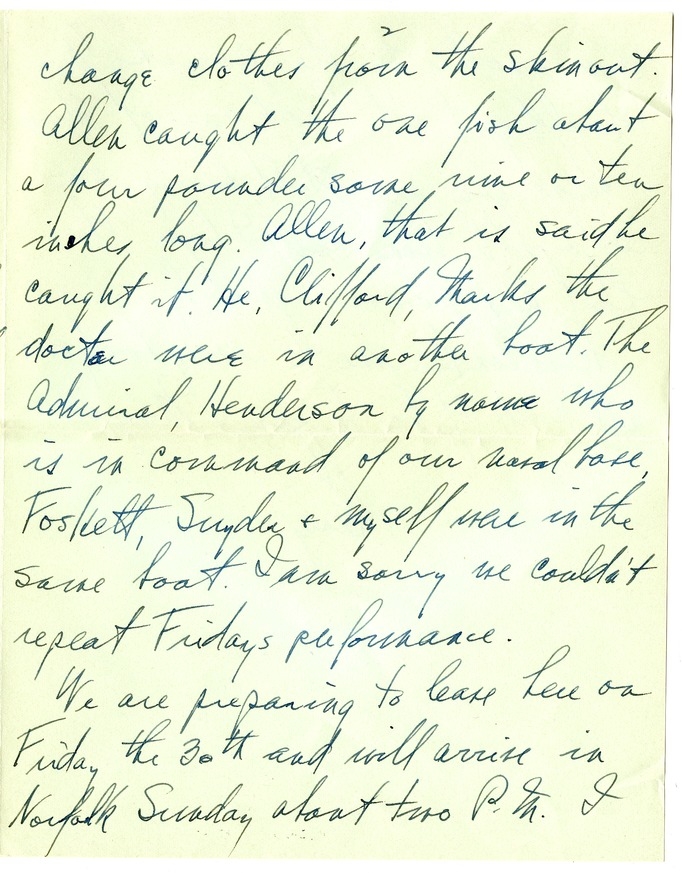 change clothes from the skinout.
Allen caught the one fish about
a four pounder some nine or ten
inches long. Allen, that is said he
caught it. He, Clifford, Marks the
doctor were in another boat. The
Admiral, Henderson by name who
is in command of our naval base,
Foskett, Snyder & myself were in the
same boat. I am sorry we couldn't
repeat Fridays performance.
We are preparing to leave here on
Friday the 30th and will arrive in
Norfolk Sunday about two P.M. I